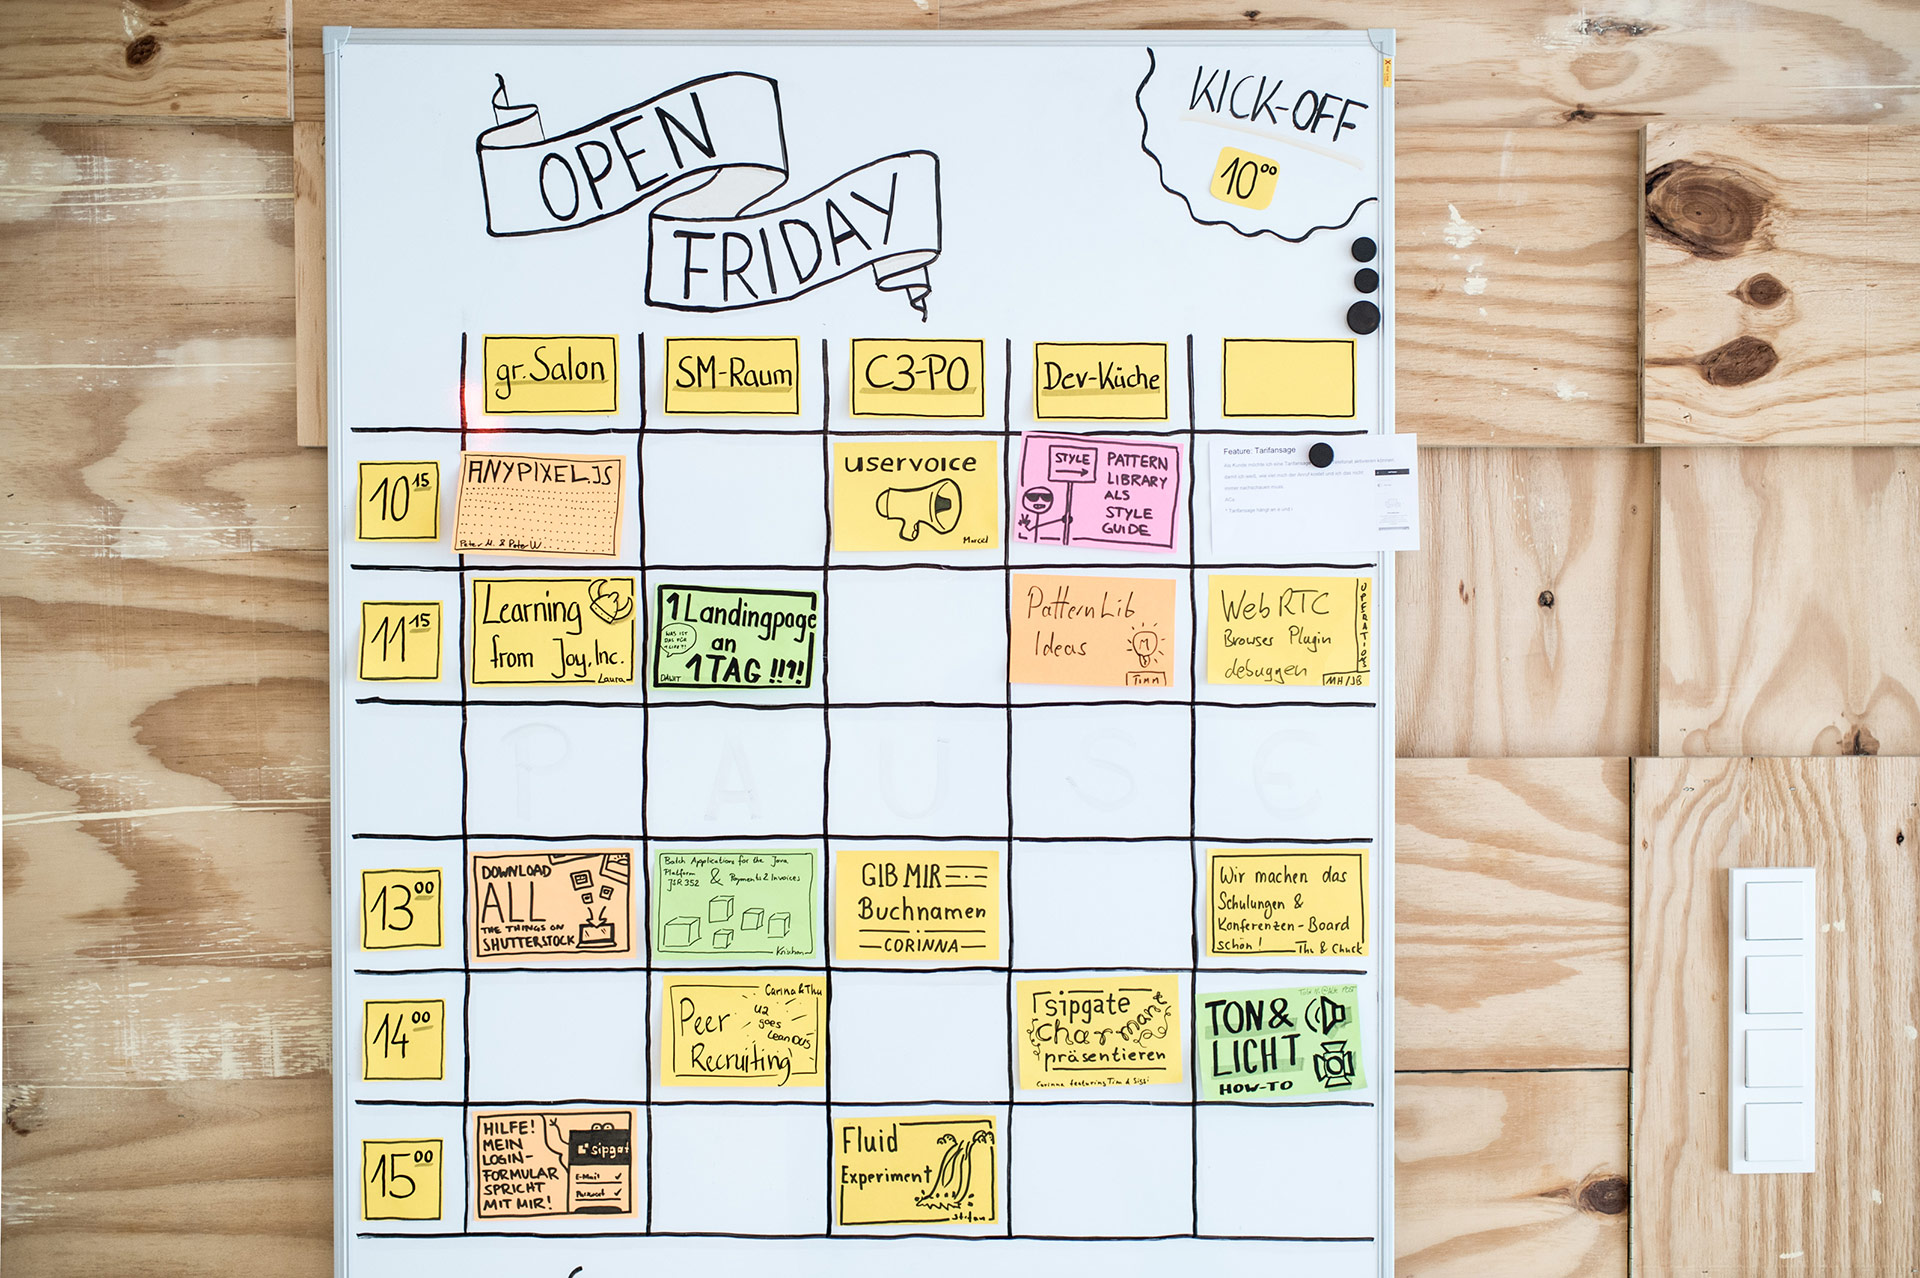 OPEN
FRIDAY
KICK-OFF
10⁰⁰
gr. Salon
SM-Raum
C3-PO
Dev-Küche
10¹⁵
ANYPIXEL.JS
Peter M. & Peter W.
uservoice
Marcel
STYLE
PATTERN
LIBRARY
ALS
STYLE
GUIDE
Feature: Tarifansage
Als Kunde möchte ich eine Tarifansage
11¹⁵
Learning
from Joy, Inc.
Laura
1 Landingpage
an
1 TAG !!!1!
WAS IST
DAWIT
PatternLib
Ideas
TIMM
WebRTC
Browser Plugin
debuggen
OPERATIONS
MH/JB
PAUSE
13⁰⁰
DOWNLOAD
ALL
THE THINGS ON
SHUTTERSTOCK
Batch Applications for the Java
Platform
JSR 352 & Payments & Invoices
GIB MIR
Buchnamen
CORINNA
Wir machen das
Schulungen &
Konferenzen-Board
schön!
& Chuck
14⁰⁰
Carina & Thu
Peer
Recruiting
goes
sipgate
Charmant
präsentieren
Corinna featuring Tim & Sissi
TON &
LICHT
HOW-TO
15⁰⁰
HILFE!
MEIN
LOGIN-
FORMULAR
SPRICHT
MIT MIR!
sipgat
E-Mail ✓
Passwort ✓
Fluid
Experiment
Stefan